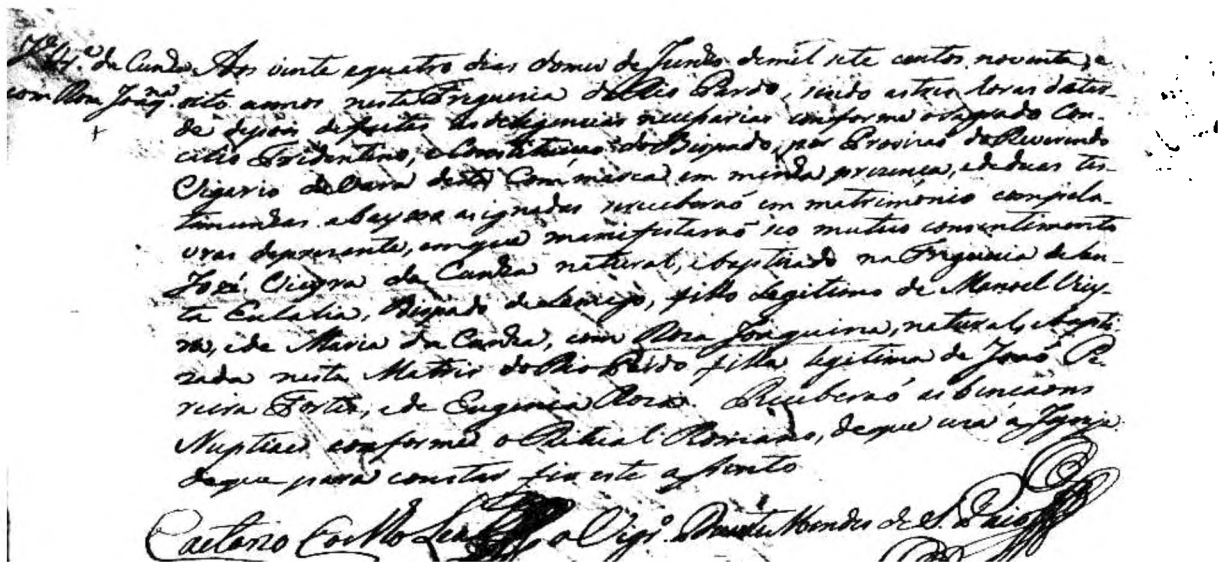 Jᵉ Vᵃ. da Cunha
com Roza Joaqᵐᵃ.
Aos vinte equatro dias domes de Junho demil sete centos noventa, e
oito annos nesta Freguezia do Rio Pardo, sendo astres horas datar-
de depois defeitas as deligencias necessarias conforme osagrado Con-
cilio Tridentino, e Constituicão do Bispado, por Provizaõ do Reverendo
Vigario da Vara desta Commarca em minha prezença, e deduas tes-
temunhas abayxo asignadas receberaõ em matrimonio compala-
vras deprezente, emque manifestaraõ seo mutuo consentimento
Jozé Vieyra da Cunha natural, ebaptizado na Freguezia de San-
ta Eulalia, Bispado de Lamego, filho Legitimo de Manoel Viey-
ra, ede Maria da Cunha, com Roza Joaquina, natural, ebapti-
zada nesta Matris do Rio Pardo filha legitima de Joaõ Pe-
reira Fortes, ede Eugenia Roza. Receberaõ as bencaons
Nupciaes conforme o Ritual Romano, deque uza a Igreja
deque para constar fiz este assento
Caetano Coelho Leal o Vigrᵒ. Mendes de S. Paio